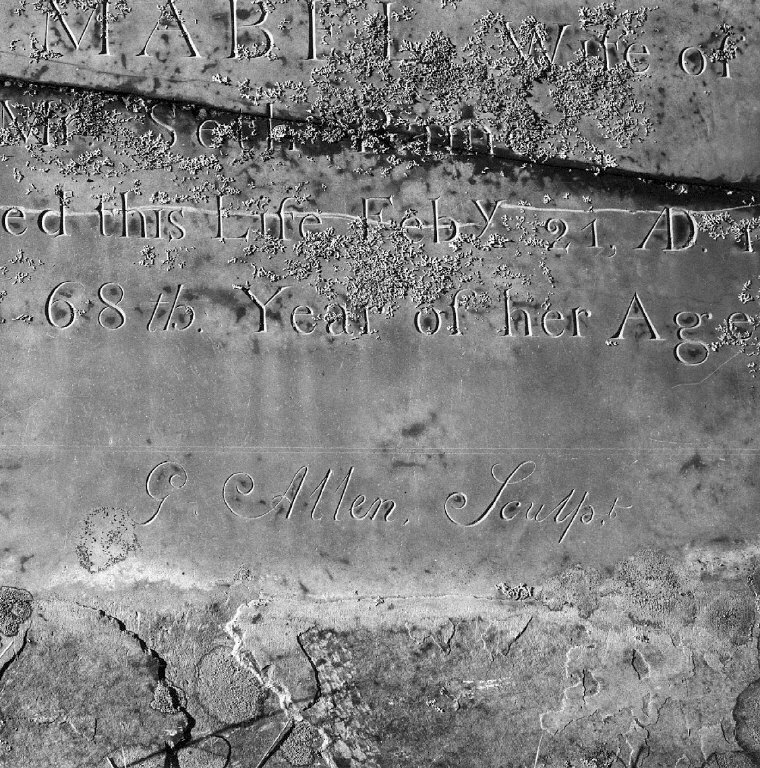 MABEL Wife of
Mr Seth Pain
ed this Life Feby 21, AD. 1
68th. Year of her Age
G. Allen, Sculpt